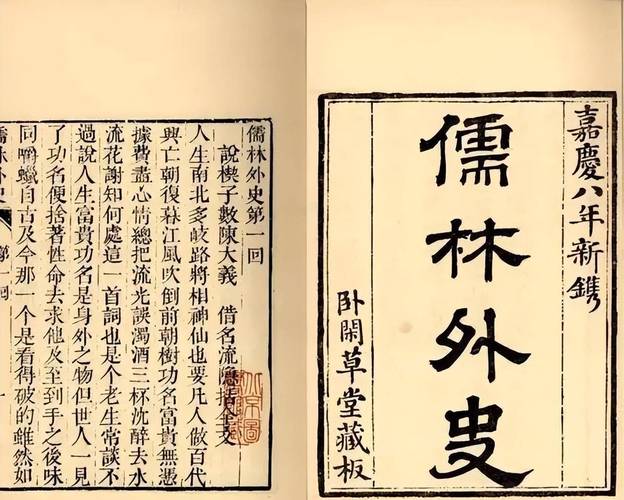 嘉慶八年新鐫
儒林外史
卧閑草堂藏板
儒林外史第一回
說楔子敷陳大義 借名流隱括全文
人生南北多岐路將相神仙也要凡人做百代
興亡朝復暮江風吹倒前朝樹功名富貴無憑
據費盡心情總把流光誤濁酒三杯沈醉去水
流花謝知何處這一首詞也是個老生常談不
過說人生富貴功名是身外之物但世人一見
了功名便捨著性命去求他及至到手之後味
同嚼蠟自古及今那一個是看得破的雖然如
儒林外史 第一回 一